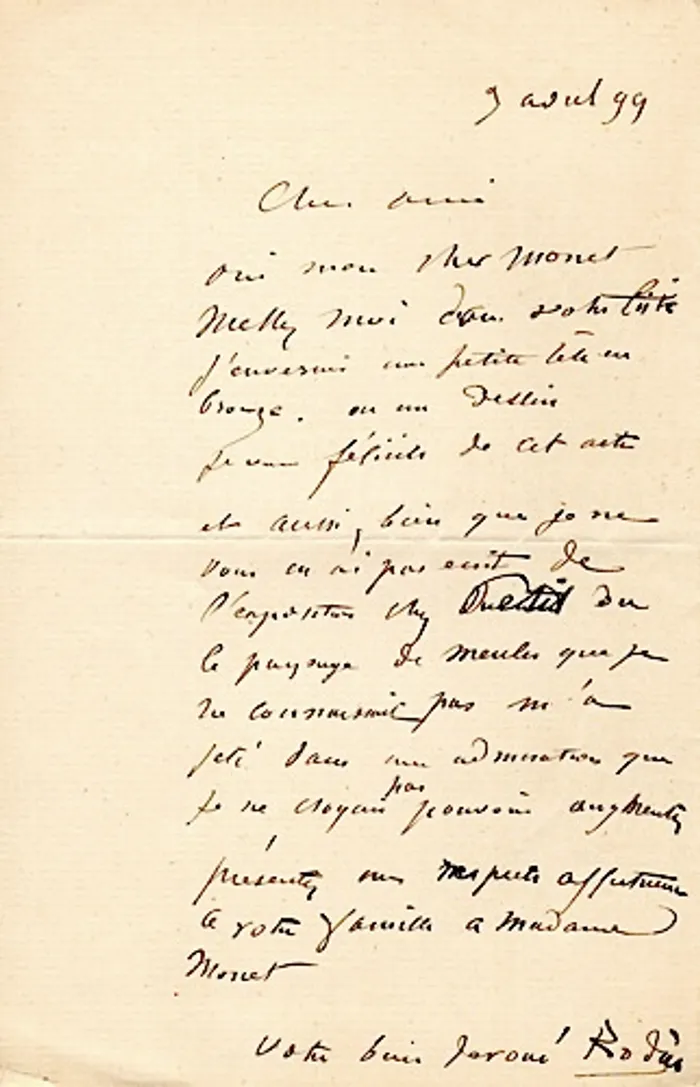 9 avril 99
Cher ami
oui mon cher Monet
Mettez moi dans votre liste
j'enverrai une petite tête en
bronze. ou un dessin
Je vous félicite de cet acte
et aussi, bien que je ne
vous en ai pas écrit de
l'exposition chez Du
le paysage de meules que je
ne connaissait pas m'a
jeté dans une admiration que
Je ne croyais pas pouvoir augmenter
présentez mes respects affectueux
à votre famille a Madame
Monet
Votre bien dévoué Rodin